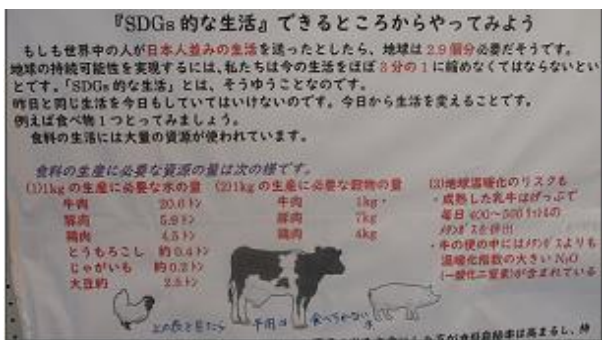 『SDGs的な生活』できるところからやってみよう
もしも世界中の人が日本人並みの生活を送ったとしたら、地球は2.9個分必要だそうです。
地球の持続可能性を実現するには、私たちは今の生活をほぼ3分の1に縮めなくてはならないとい
とです。「SDGs的な生活」とは、そうゆうことなのです。
昨日と同じ生活を今日もしていてはいけないのです。今日から生活を変えることです。
例えば食べ物1つとってみましょう。
食料の生活には大量の資源が使われています。
食料の生産に必要な資源の量は次の様です。
(1)1kgの生産に必要な水の量
牛肉 20.6トン
豚肉 5.9トン
鶏肉 4.5トン
とうもろこし 約0.4トン
じゃがいも 約0.2トン
大豆約 2.5トン
(2)1kgの生産に必要な穀物の量
牛肉
豚肉 7kg
鶏肉 4kg
(3)地球温暖化のリスクも
・成熟した乳牛はげっぷで
毎日400~500リットルの
メタンガスを排出
・牛の便の中にはメタンガスよりも
温暖化指数の大きいN₂O
(一酸化二窒素)が含まれている
上の表を見たら 牛肉は 食べちゃいかん